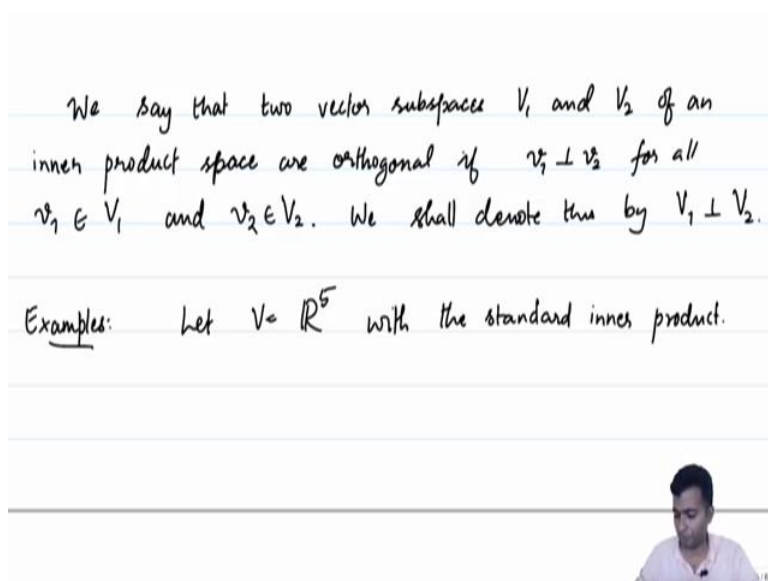 We say that two vector subspaces V₁ and V₂ of an
inner product space are orthogonal if v₁ ⊥ v₂ for all
v₁ ∈ V₁ and v₂ ∈ V₂. We shall denote this by V₁ ⊥ V₂.
Examples: Let V= ℝ⁵ with the standard inner product.